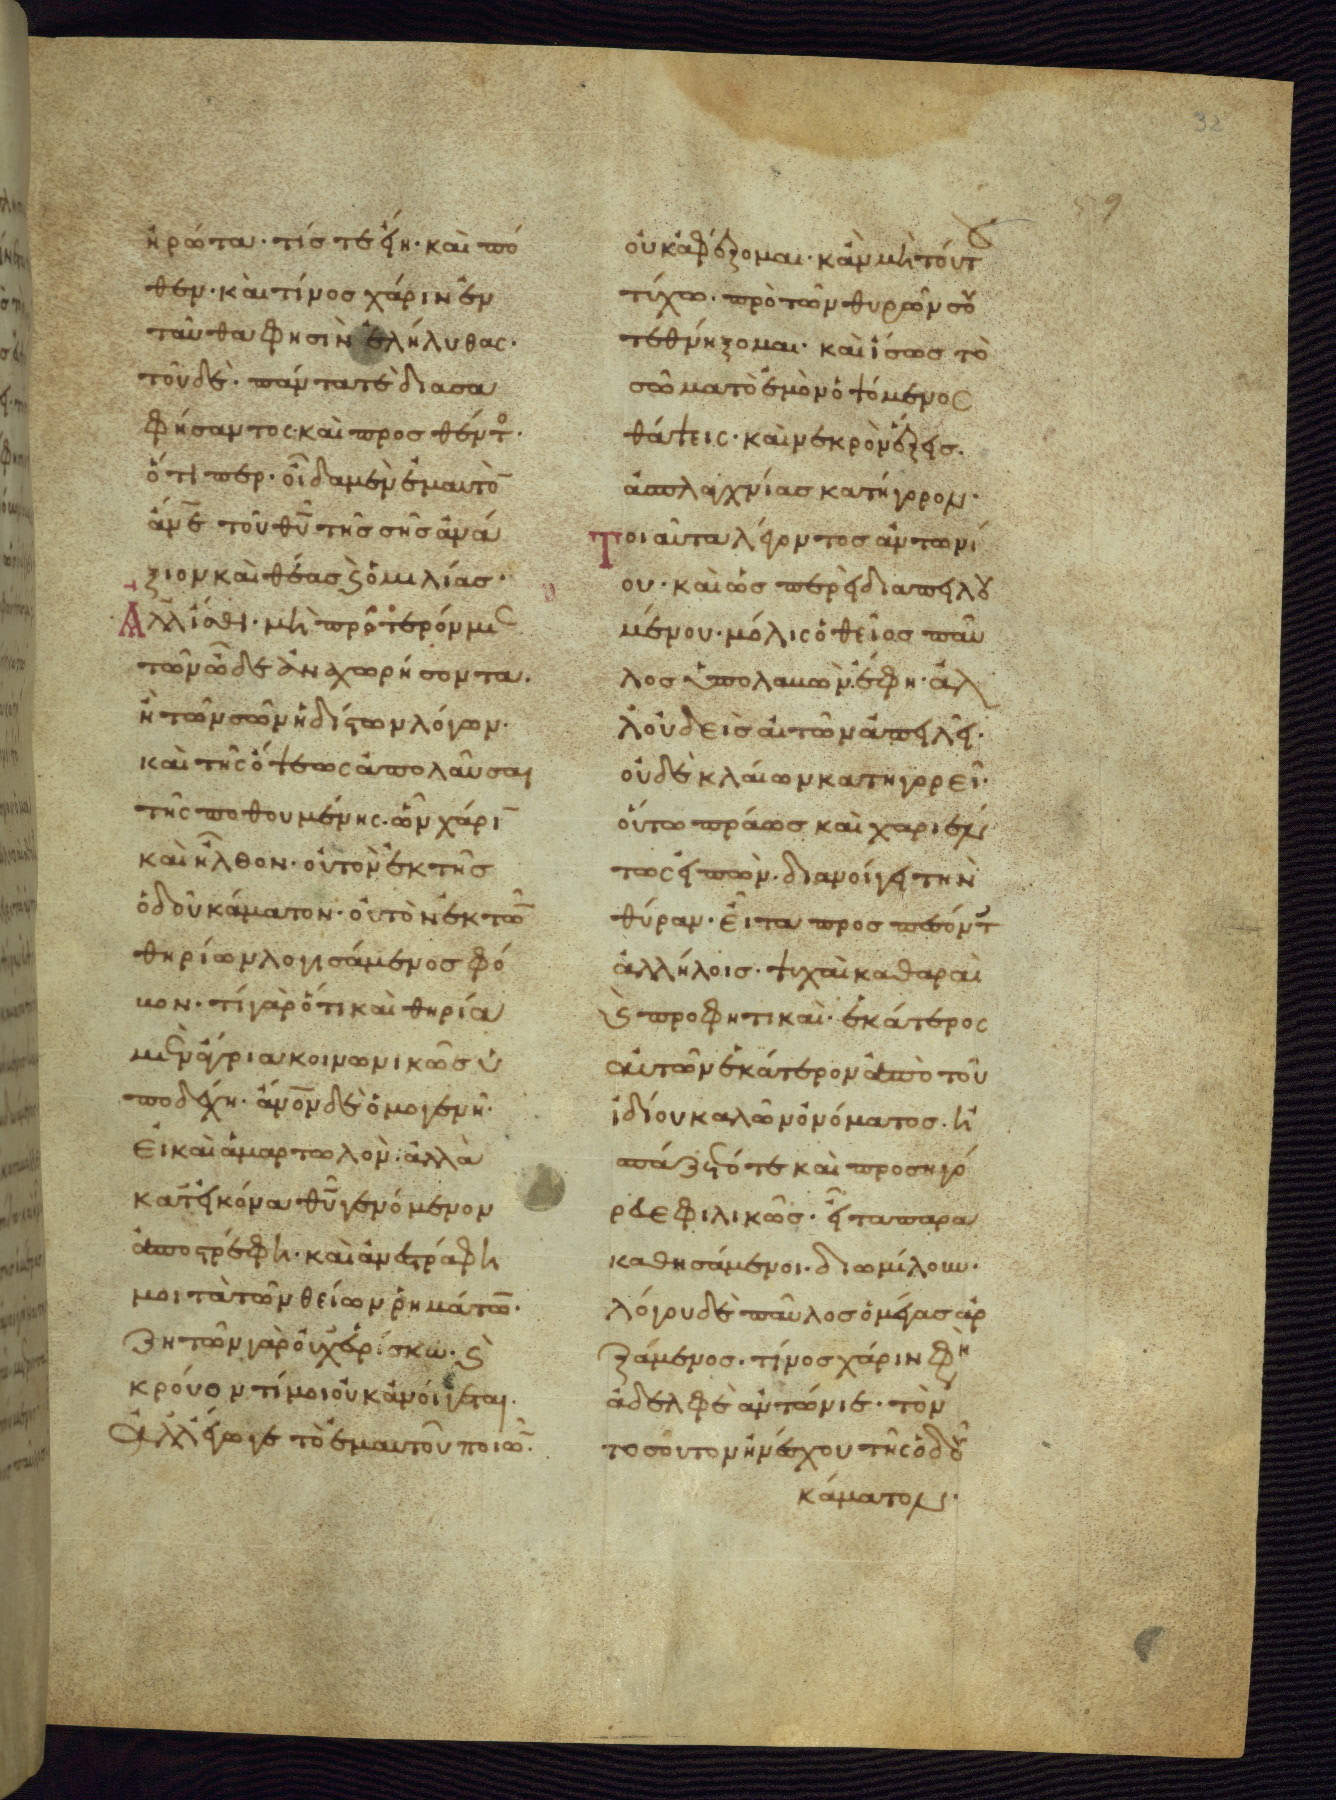 32
ἠρώτα· τίς τὲ εἴη· καὶ πό
θεν· καὶ τίνος χάριν ἐν
ταῦθα φησὶν ἐλήλυθας·
τοῦ δὲ· πάντα τὲ διασα
φήσαντος· καὶ προσθέντο·
ὅτι περ· οἶδα μὲν ἐμαυτὸ
ἀνε τοῦ θῦ τῆς σῆς ἀνά
ξιον καὶ θέας ϗ ὁμιλίας·
Ἀλλ ἴσθι· μὴ πρότερόν με
τῶν ὧδε ἀναχωρήσοντα·
ἢ τῶν σῶν ἡδίστων λόγων·
καὶ τῆς ὄψεως ἀπολαῦσαι
τῆς ποθουμένης· ὧν χάρι
καὶ ἦλθον· οὐ τὸν ἐκ τῆς
ὁδοῦ κάματον· οὐ τὸν ἐκ τῶ
θηρίων λογισάμενος φό
βον· τί γὰρ ὅτι καὶ θηρία
μὲν ἄγρια κοινωνικῶς ὑ
ποδέχη· ἄνον δὲ ὁμογενῆ·
εἰ καὶ ἁμαρτωλὸν· ἀλλὰ
κατ εἰκόνα θῦ γενόμενον
ἀποστρέφη· καὶ ἀνεστράφη
μοι τὰ τῶν θείων ῥημάτω·
ζητῶν γὰρ οὐχ εὑρίσκω· ϗ
κρούον τί μοι οὐκ ἀνοίγεται·
ἀλλ ἔγωγε τὸ ἐμαυτοῦ ποιῶ·
οὐκ ἀφέξομαι· κἂν μὴ τούτ
τύχω· πρὸ τῶν θυρῶν σου
τεθνήξομαι· καὶ ἴσως τὸ
σῶμα τὸ ἐμὸν ὀψόμενος
θάψεις· καὶ νεκρὸν ἕξεις·
ἀσπλαγχνίας κατήγορον·
Τοιαῦτα λέγοντος ἀντωνί
ου· καὶ ὡς περεὶ διαπειλου
μένου· μόλις ὁ θεῖος παῦ
λος ὑπολαβὼν· ἔφη· ἀλ
λ οὐδεὶς αἰτῶν ἀπειλεῖ·
οὐδὲ κλαίων κατηγορεῖ·
οὕτω πράως καὶ χαριέν
τως εἰπὼν· διανοίγει τὴν
θύραν· εἶτα προσπεσόντ
ἀλλήλοις· ψυχαὶ καθαραὶ
ϗ προφητικαὶ· ἑκάτερος
αὐτῶν ἑκάτερον ἀπὸ τοῦ
ἰδίου καλῶν ὀνόματος· ἠ
σπάζετό τε καὶ προσηγό
ρευε φιλικῶς· εἶτα παρα
καθησάμενοι· διωμίλουν·
λόγου δὲ παῦλος ὁ μέγας ἀρ
ξάμενος· τίνος χάριν φη
ἀδελφὲ ἀντώνιε· τὸν
τοσοῦτον ἠνέσχου τῆς ὁδοῦ
κάματον·